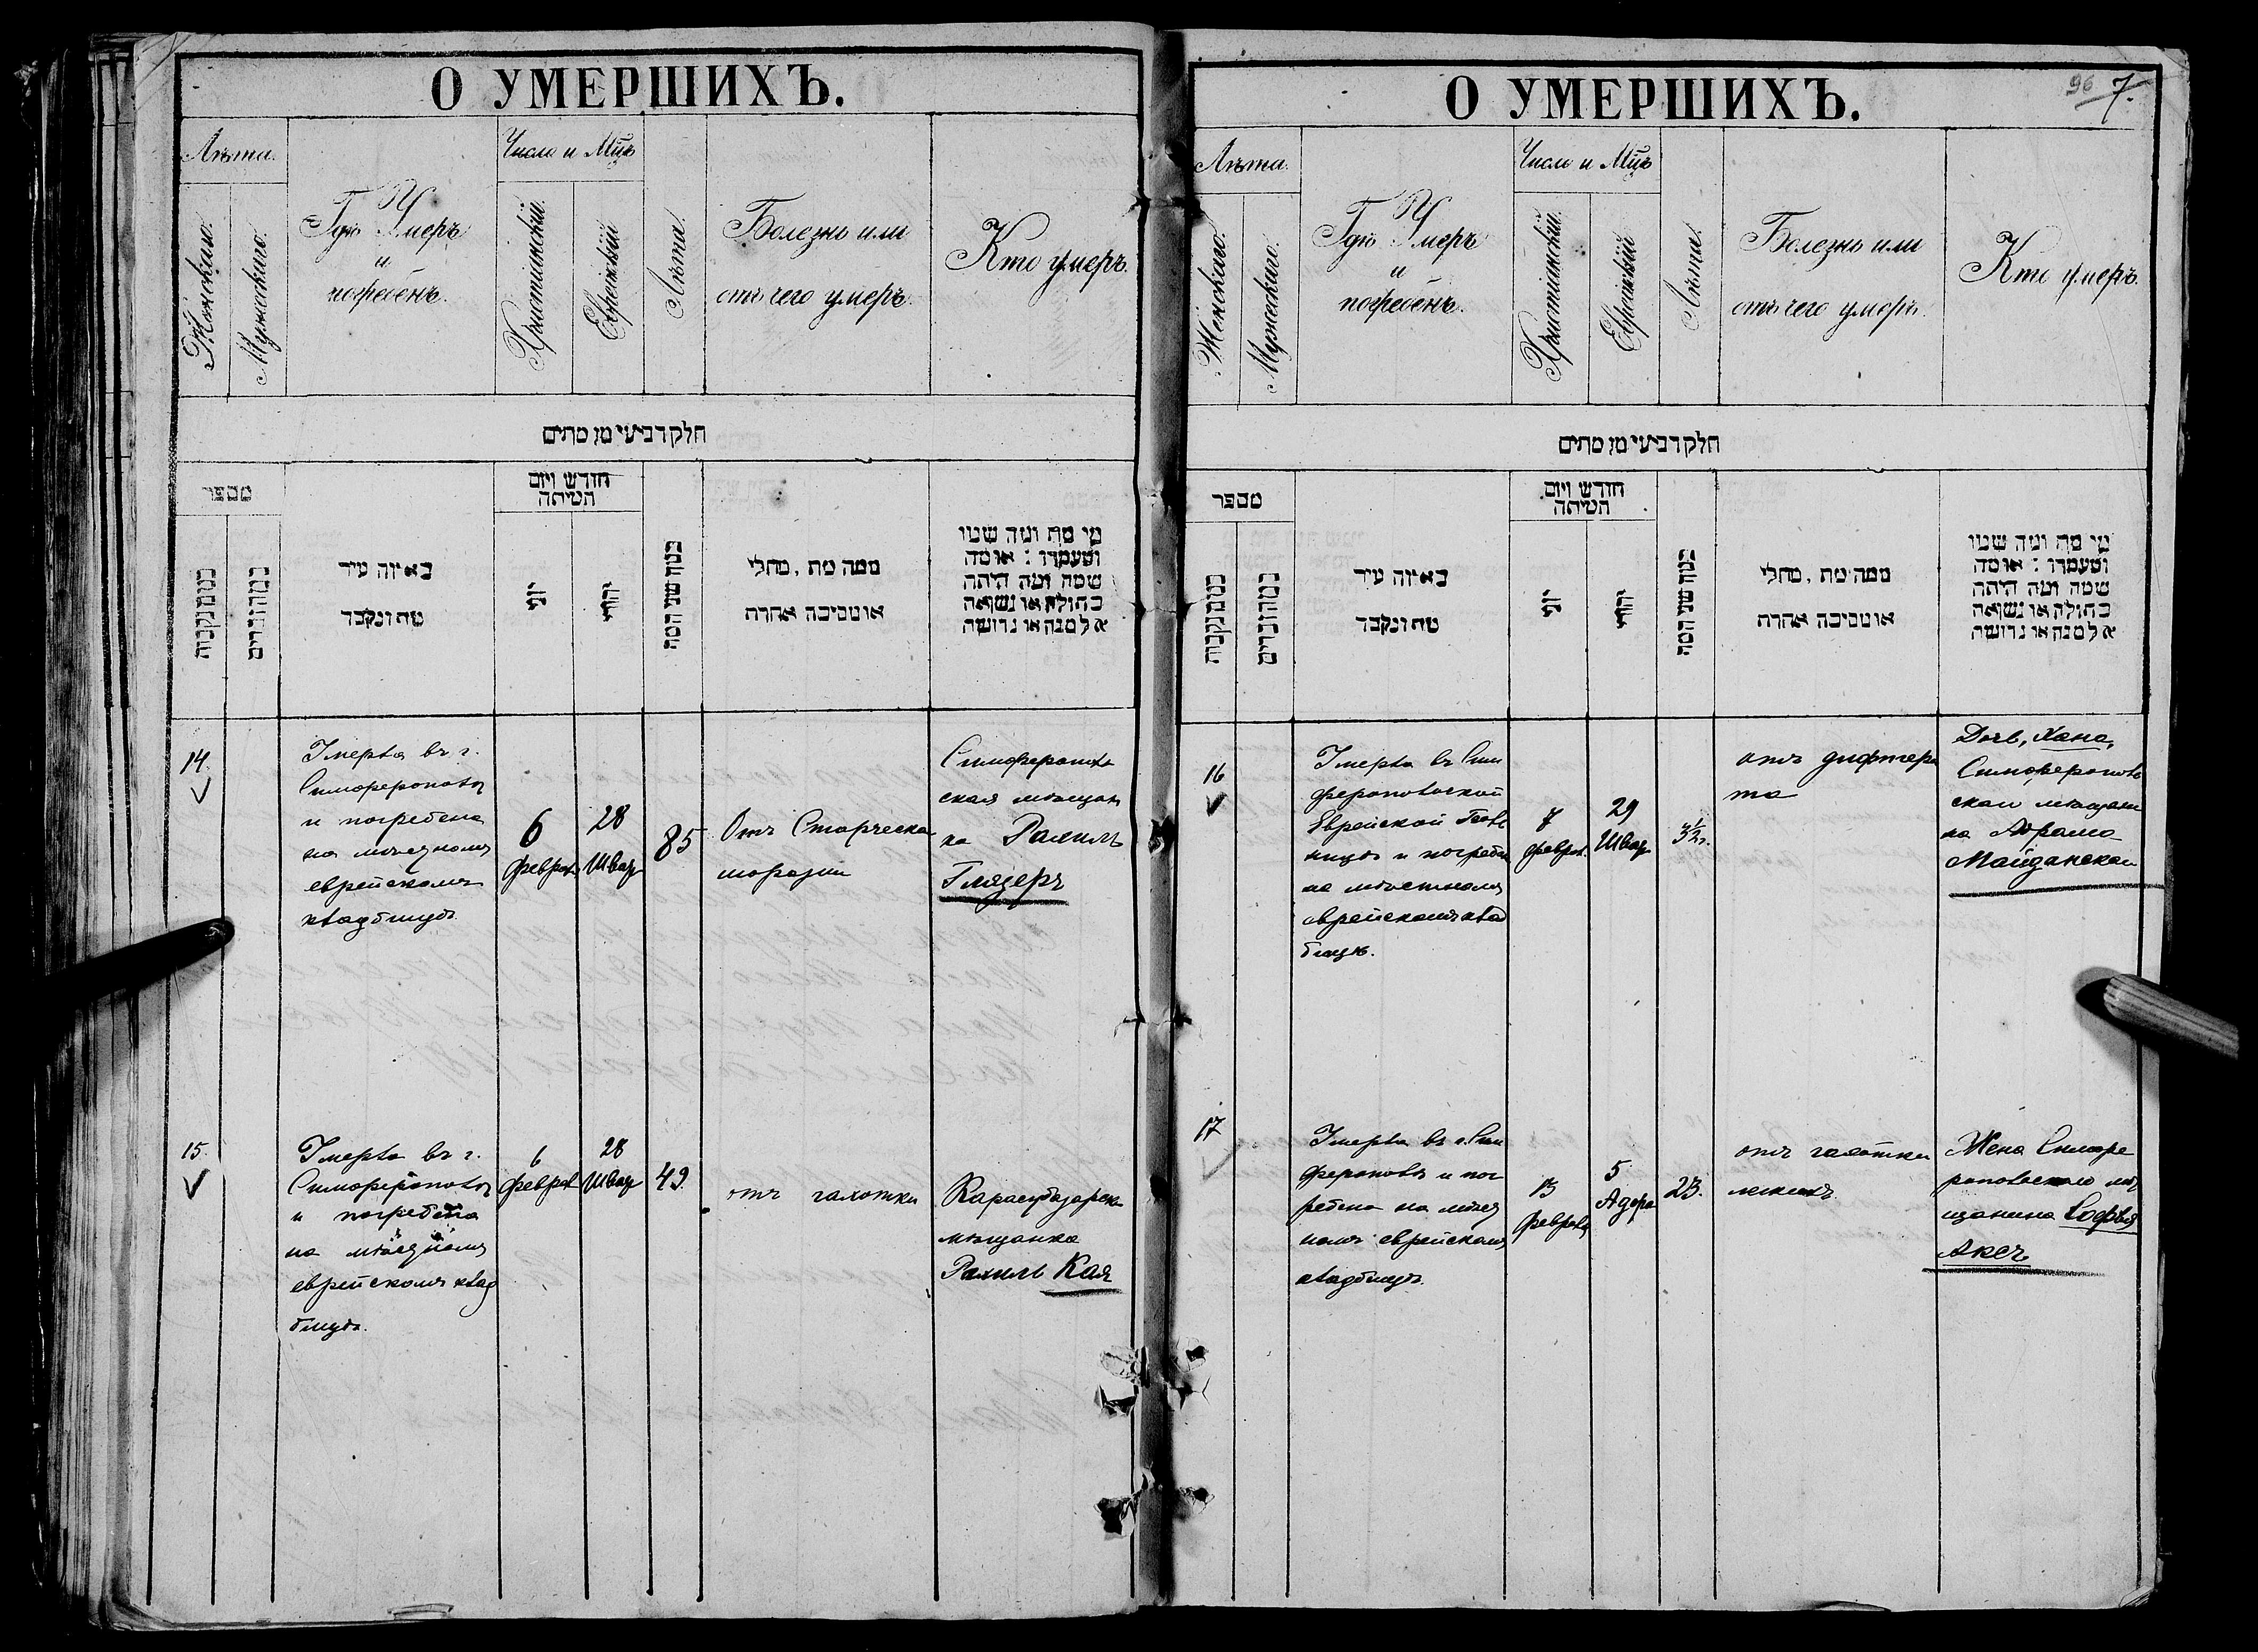 О УМЕРШИХЪ.
Лѣта.
Женскаго.
Мужескаго.
Гдѣ Умеръ
и
погребенъ.
Число и Мцъ
Христіанскій.
Еврейскій
Лѣта.
Болезнь или
отъ чего умеръ.
Кто умеръ.
חלק רביעי מן מתים
מספר
ממנקבות
מהזכרים
באיזה עיר
מת ונקבר
חודש ויום
המיתה
יוני
יהודי
כמה שני המת
ממה מת, מחלי
או מסיבה אחרת
מי מת ומה שמו
ומעמדו : או מה
שמה ומה היתה
בתולה או נשואה
אלמנה או גרושה
14
Умерла въ г.
Симферополѣ
и погребена
на мѣстномъ
еврейскомъ
кладбищѣ.
6
Феврал
28
Шват
85
Отъ Старческа
маразма
Симферополь
ская мѣщан
ка Рахиль
Глязеръ
15.
Умерла въ г.
Симферополѣ
и погребена
на мѣстномъ
еврейскомъ клад
бищѣ.
6
Феврал
28
Шват
49
отъ чахотки
Карасубазарска
мѣщанка
Рахиль Кая
О УМЕРШИХЪ.
96 7.
Лѣта.
Женскаго.
Мужескаго.
Гдѣ Умеръ
и
погребенъ.
Число и Мцъ
Христіанскій.
Еврейскій
Лѣта.
Болезнь или
отъ чего умеръ.
Кто умеръ.
חלק רביעי מן מתים
מספר
ממנקבות
מהזכרים
באיזה עיר
מת ונקבר
חודש ויום
המיתה
יוני
יהודי
כמה שני המת
ממה מת, מחלי
או מסיבה אחרת
מי מת ומה שמו
ומעמדו : או מה
שמה ומה היתה
בתולה או נשואה
אלמנה או גרושה
16
Умерла въ Сим
феропольской
Еврейской Боль
ницѣ и погребен
на мѣстномъ
еврейскомъ клад
бищѣ.
7
Феврал.
29
Шват
3½ г.
отъ дифтери
та
Дочь, Хана,
Симферополь
скаи мѣщани
на Абрама
Майданскаи
17
Умерла въ г. Сим
ферополѣ и пог
ребена на мѣст
номъ еврейскомъ
кладбищѣ.
13
Феврал
5
Адара
23.
отъ чахотки
легкихъ
Жена Симфе
ропольскаго мѣ
щанина Софья
Аксъ.